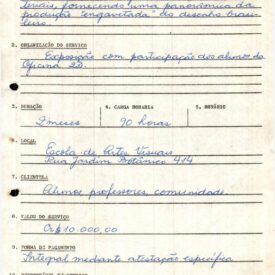 teriais, fornecendo uma panorâmica da
produção "engavetada" do desenho brasi-
leiro.
2. ORGANIZAÇÃO DO SERVIÇO
Exposição com participação dos alunos da
Oficina 2D.
3. DURAÇÃO 4. CARGA HORARIA 5. HORÁRIO
2 meses 90 horas
6. LOCAL
Escola de Artes Visuais
Rua Jardim Botânico 414
7. CLIENTELA
Alunos professores, comunidade.
8. VALOR DO SERVIÇO
Cr$ 10.000,00
9. FORMA DE PAGAMENTO
Integral mediante atestação específica